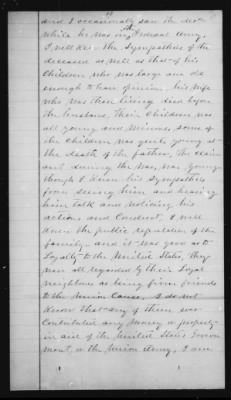 and I occasionally saw the
while he was in the Federal Army.
I well knew the Sympathies of the
deceased as well as that of his
Children who was large and old
enough to hear opinion, his wife
who was then living died before
the husband. Their Children was
all young and minors, some of
the children was quite young at
the death of the father, the claim
ant during the war, was young
though I knew his Sympathies
from seeing him and hearing
him talk and noticing his
actions and Conduct, I well
knew the public reputation of the
family and it was good as to
Loyalty to the United States, they
was all regarded by their Loyal
neighbors as being firm friends
to the Union Cause, I do not
know that any of them ever
contributed any money or property
in aid of the United States Govern
ment, or the Union Army, I am